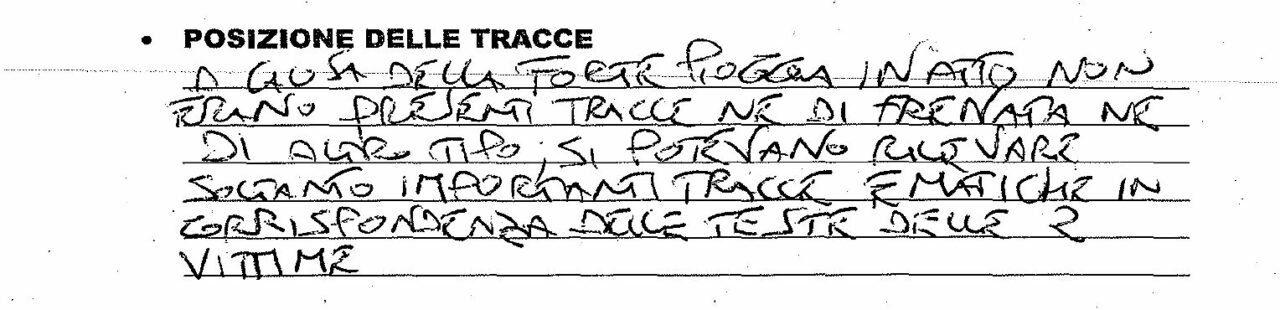 • POSIZIONE DELLE TRACCE
A CAUSA DELLA FORTE PIOGGIA IN ATTO NON
ERANO PRESENTI TRACCE NE DI FRENATA NE
DI ALTRO TIPO, SI POTEVANO RILEVARE
SOLTANTO IMPORTANTI TRACCE EMATICHE IN
CORRISPONDENZA DELLE TESTE DELLE 2
VITTIME